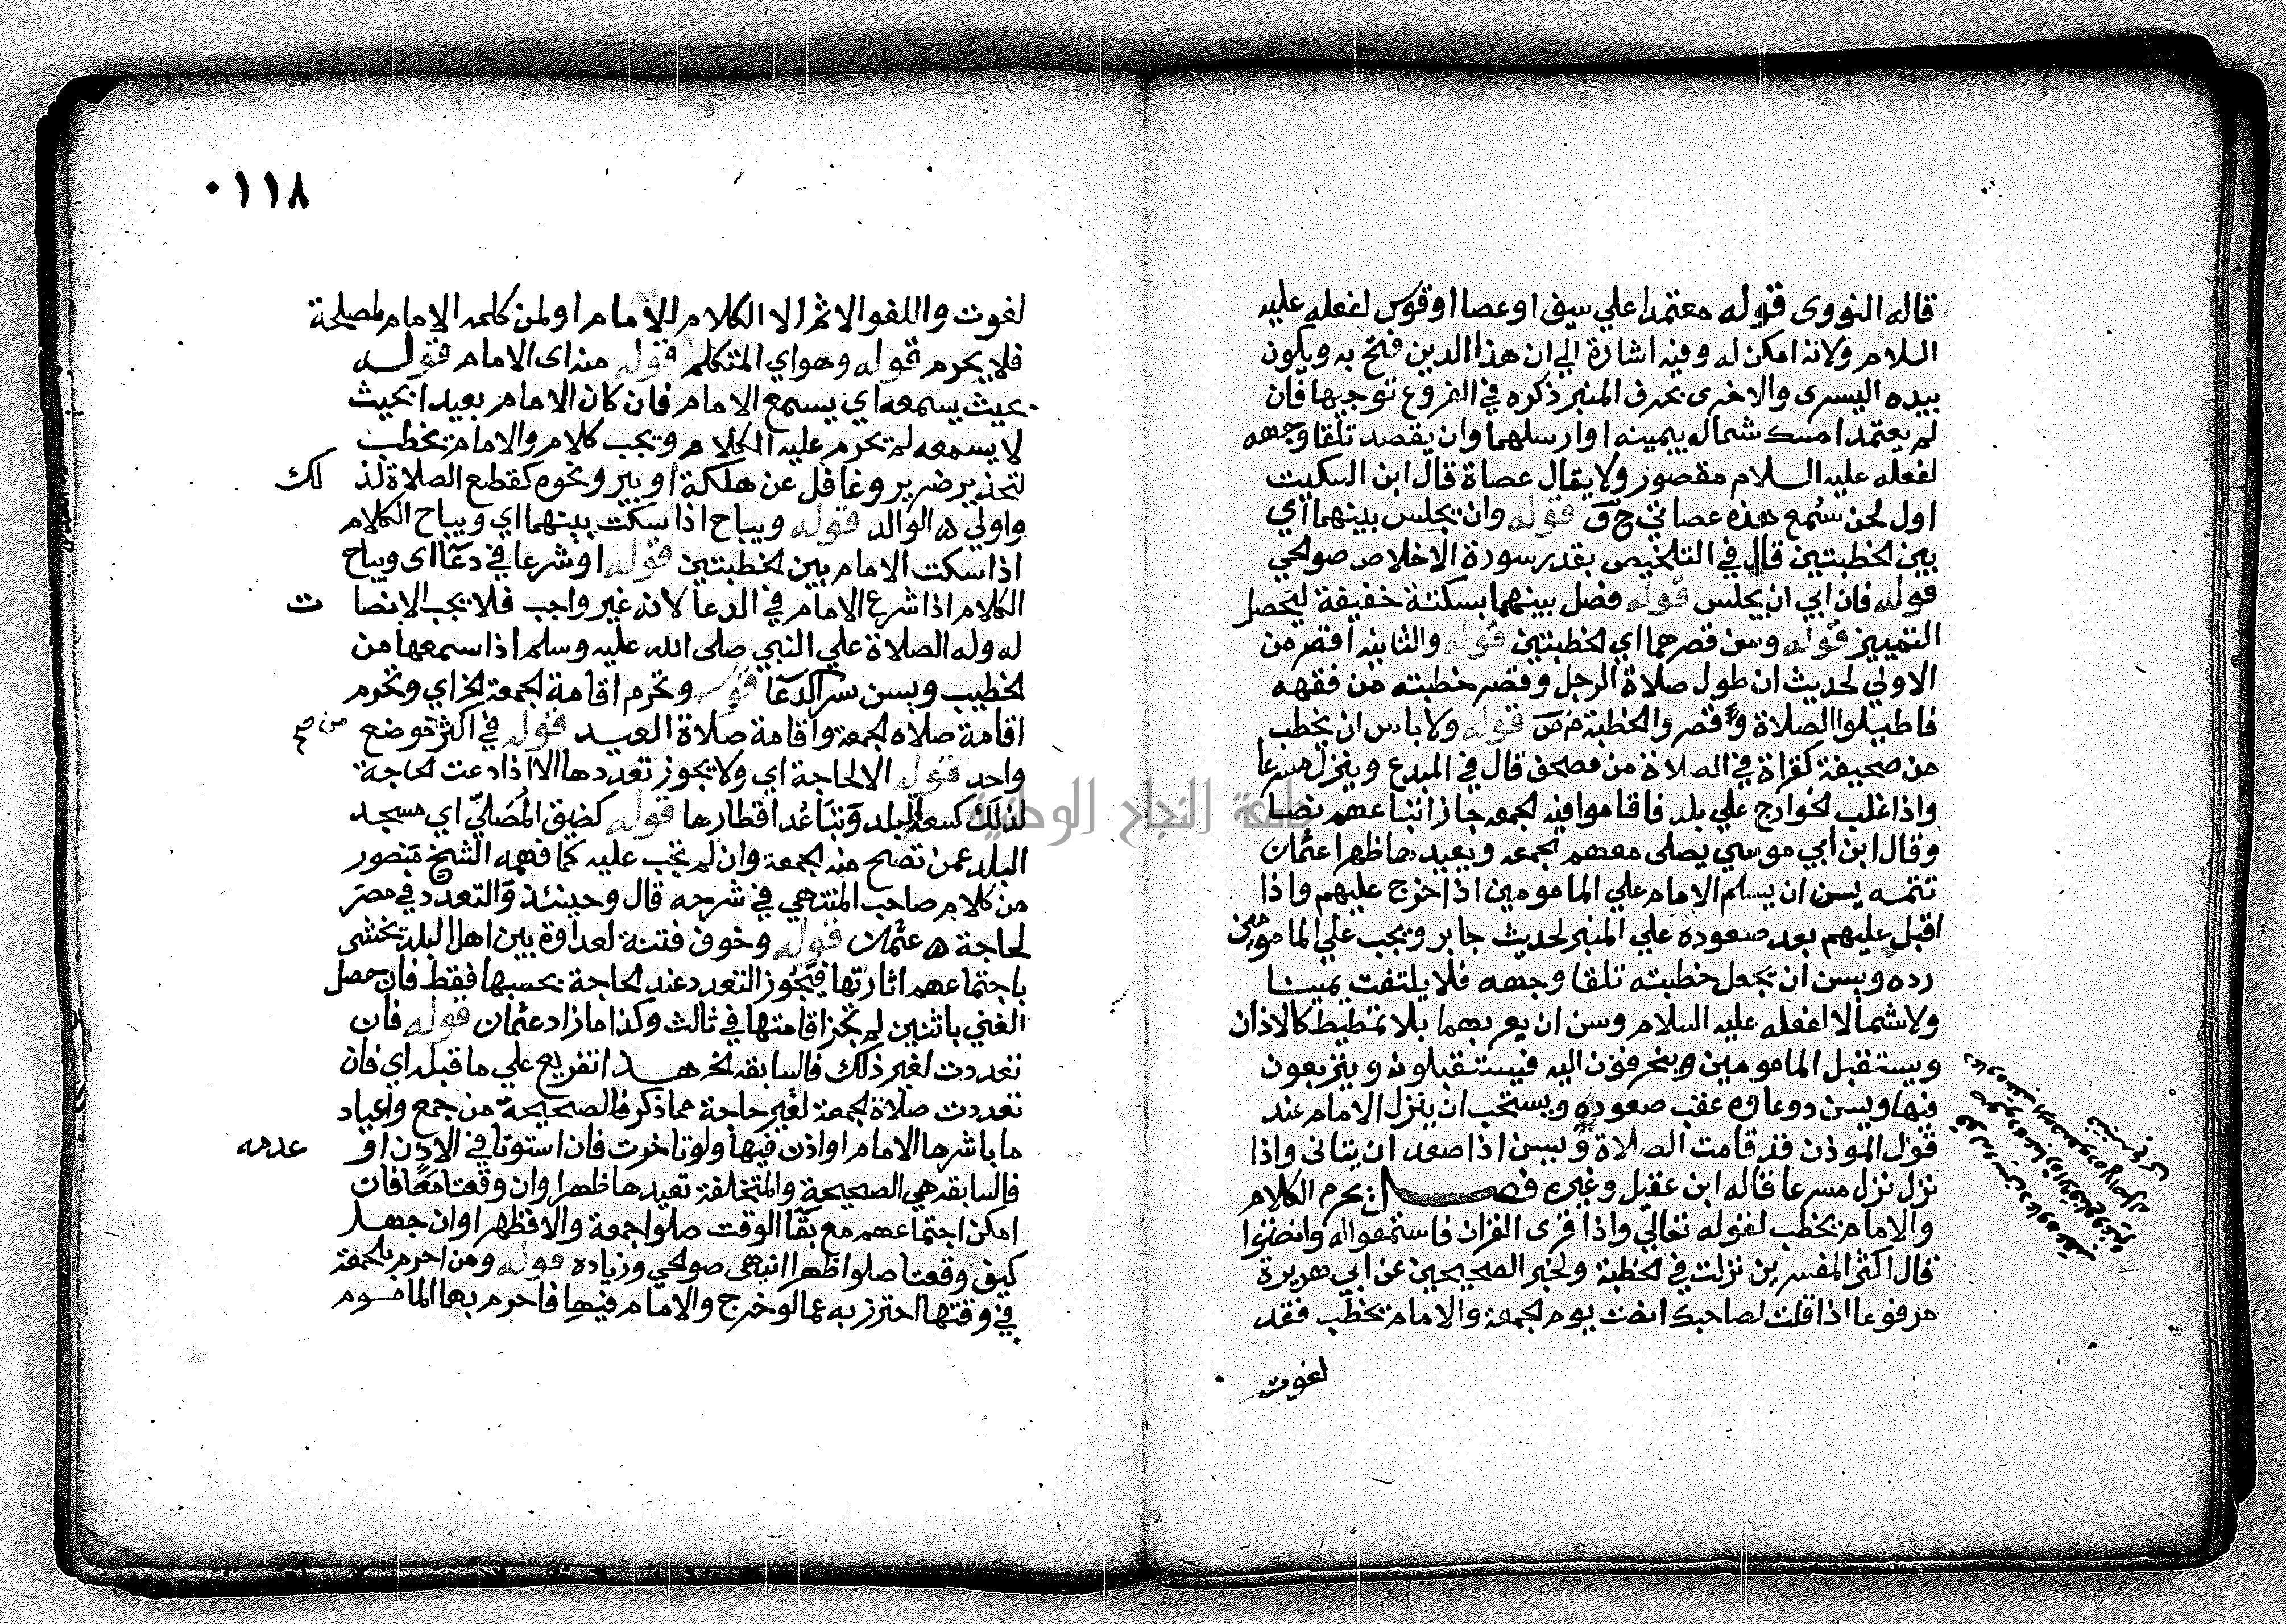 قاله النووى قوله معتمدا علي سيف او عصا او قوس لفعله عليه
السلام ولانه امكن له وفيه اشارة الي ان هذا الدين فتح به ويكون
بيده اليسرى والاخرى بحرف المنبر ذكره في الفروع توجيها فان
لم يعتمد امسك شماله بيمينه او ارسلهما وان يقصد تلقا وجهه
لفعله عليه السلام مقصور ولا يقال عصاة قال ابن السكيت
اول لحن سُمع هذه عصاتي ح ق قوله وان يجلس بينهما اي
بين الخطبتين قال في التلخيص بقدر سورة الاخلاص صوالحي
قوله فان ابي ان يجلس قوله فصل بينهما بسكتة خفيفة ليحصل
التمييز قوله وسن قصرهما اي الخطبتين قوله والثانيه اقصر من
الاولي لحديث ان طول صلاة الرجل وقصر خطبته من فقهه
فاطيلوا الصلاة واقصروا الخطبة م س قوله ولا باس ان يخطب
من صحيفة كقراة في الصلاة من مصحف قال في المبدع وينزل مسرعا
واذا غلب الخوارج علي بلد فاقاموا فيه الجمعه جاز اتباعهم نصا
وقال ابن ابي موسي يصلي معهم الجمعه ويعيدها ظهرا عثمان
تتمه يسن ان يسلم الامام علي المامومين اذا خرج عليهم واذا
اقبل عليهم بعد صعوده علي المنبر لحديث جابر ويجب علي المامومين
رده ويسن ان يجعل خطبته تلقا وجهه فلا يلتفت يمينا
ولا شمالا لفعله عليه السلام وسن ان يعربهما بلا تمطيط كالاذان
ويستقبل المامومين وينحرفون اليه فيستقبلونه ويتربعون
فيها ويسن دوعاوه عقب صعوده ويستحب ان ينزل الامام عند
قول الموذن قد قامت الصلاة ويسن اذا صعد ان يتانى واذا
نزل نزل مسرعا قاله ابن عقيل وغيره فصل يحرم الكلام
والامام يخطب لقوله تعالي واذا قرى القران فاستمعوا له وانصتوا
قال اكثر المفسرين نزلت في الخطبة ولخبر الصحيحين عن ابي هريرة
مرفوعا اذا قلت لصاحبك انصت يوم الجمعة والامام يخطب فقد
لغوت
٠١١٨
لغوت واللغو الاثم الا الكلام للامام او لمن كلمه الامام لمصلحة
فلا يحرم قوله وهو اي المتكلم قوله منه اى الامام قوله
بحيث يسمعه اي يسمع الامام فان كان الامام بعيدا بحيث
لا يسمعه لم يحرم عليه الكلام ويجب كلام والامام يخطب
لتحذير ضرير وغافل عن هلكة او بير ونحوه كقطع الصلاة لذ لك
واولي ه الوالد قوله ويباح اذا سكت بينهما اي ويباح الكلام
اذا سكت الامام بين الخطبتين قوله او شرعا في دعا اى ويباح
الكلام اذا شرع الامام في الدعا لانه غير واجب فلا يجب الانصا ت
له وله الصلاة علي النبي صلى الله عليه وسلم اذا سمعها من
الخطيب ويسن سرا كدعا قوله وتحرم اقامة الجمعة الخ اي وتحرم
اقامة صلاه الجمعة واقامة صلاة العيد قوله في اكثر من موضع صح
واحد قوله الا لحاجة اي ولا يجوز تعددها الا اذا دعت الحاجة
لذلك كسعة البلد وتباعد اقطارها قوله كضيق المُصَليّ اي مسجد
البلد عمن تصح منه الجمعة وان لم تجب عليه كما فهمه الشيخ منصور
من كلام صاحب المنتهي في شرحه قال وحينئذ فالتعدد في مصر
لحاجة ه عثمان قوله وخوف فتنة لعداوة بين اهل البلد يخشى
باجتماعهم اثارتها فيجوز التعدد عند الحاجة بحسبها فقط فان حصل
الغني باثنين لم يجز اقامتها في ثالث وكذا ما زاد عثمان قوله فان
تعددت لغير ذلك فالسابقه الخ هذا تفريع علي ما قبله اي فان
تعددت صلاة الجمعة لغير حاجة مما ذكر فالصحيحة من جمع واعياد
ما باشرها الامام او اذن فيها ولو تاخرت فان استوتا في الاذن او عدمه
فالسابقه هي الصحيحة والمتخلفة تعيدها ظهرا وان وقعتا معا فان
امكن اجتماعهم مع بقا الوقت صلوا جمعة والا فظهرا وان جهل
كيف وقعتا صلوا ظهرا انتهى صوالحي وزياده قوله ومن احرم بالجمعة
في وقتها احترز به عما لو خرج والامام فيها فاحرم بها الماموم